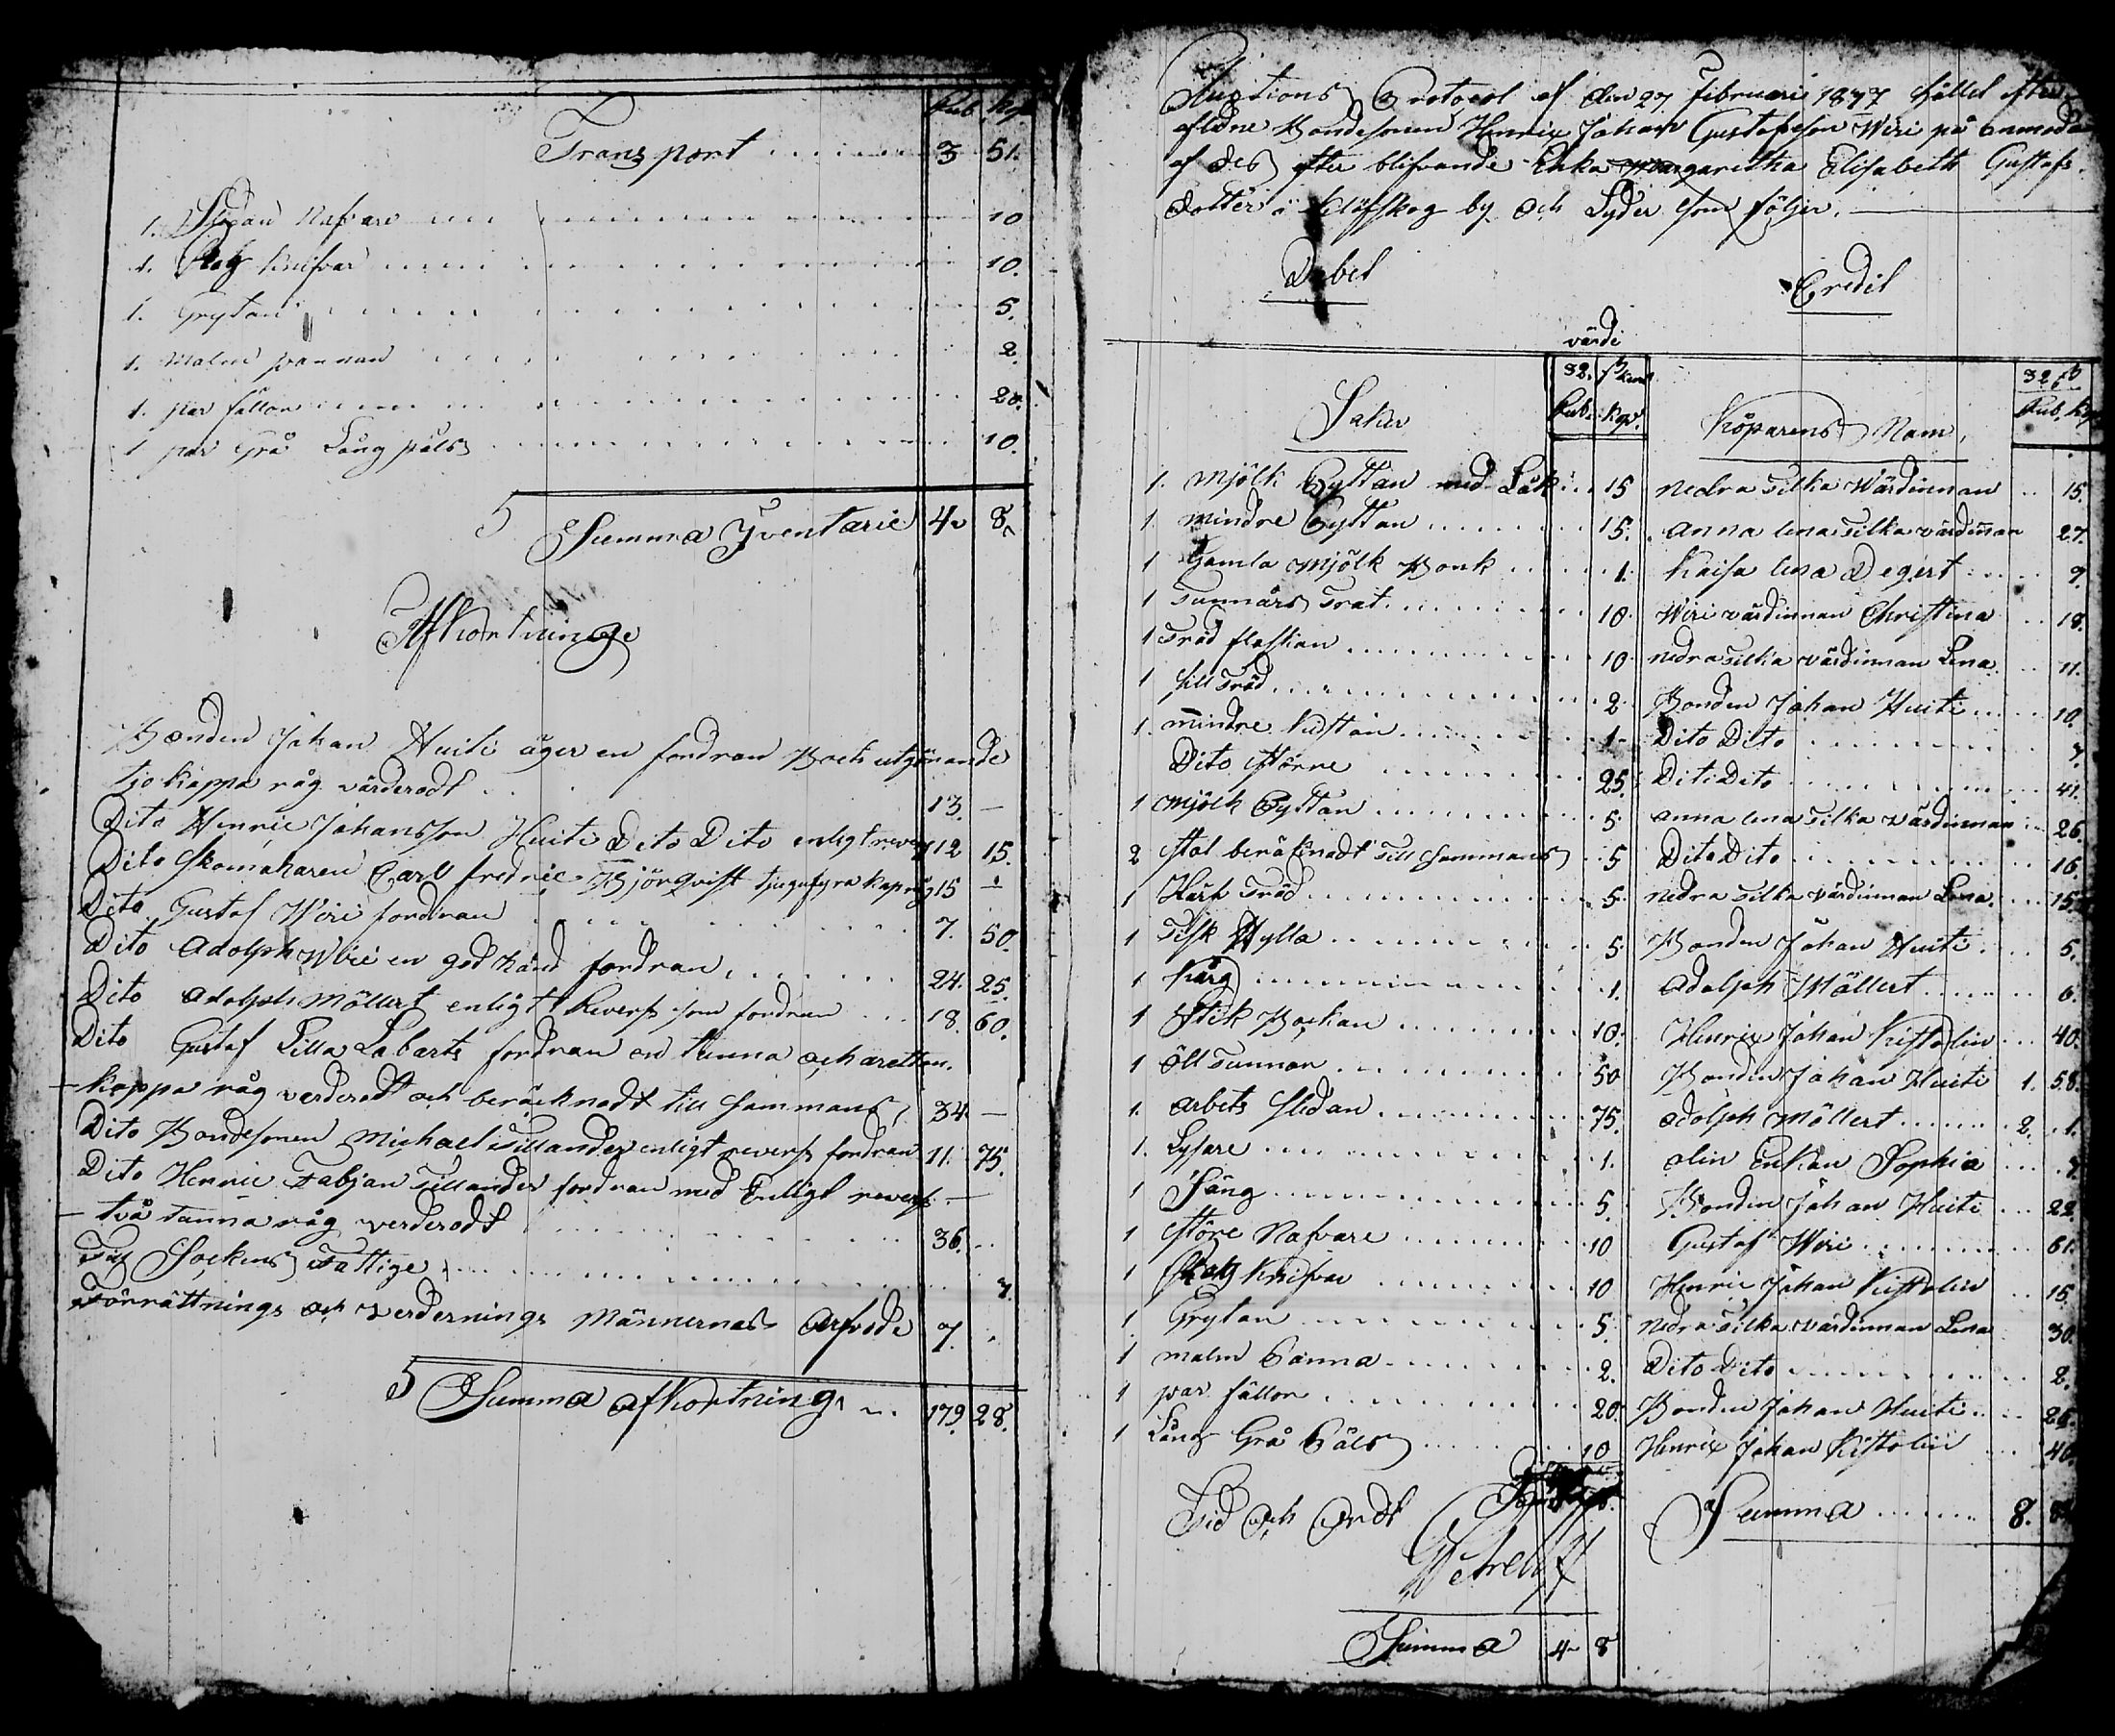 Rub. Kop
Transport 3 51.
1. Nafvare 10
1. Knifvar 10.
1. Grytan 5.
1. Malm pannan 2.
1. par fällor 20.
1 par Grå Lång päls 10.
Summa Yventarie 4 8
Afkortninge
Bonden Johan Huiti äger en fordran utgörande
tjo kappa råg värderadt 13. —
Dito Henric Johansson Huiti Dito Dito enligt revers 12 15.
Dito Skomakaren Carl fredric Björqvist tjugufyra kap råg 15 —
Dito Gustaf Wiri fordran 7. 50.
Dito Adolph Wiri en god känd fordran 24. 25.
Dito Adolph Mällert enligt Revers som fordran 18. 60.
Dito Gustaf Lilla Labarts fordran en tunna och aretton
kappa råg verderadt och beräcknadt till sammans 34 —
Dito Bondesonen Michael Tillander enligt revers fordran 11. 75.
Dito Henric Fabjan Tillander fordran med Enligt revers —
två tunna råg verderadt 36.
Sockens Fattige 3.
Förrättnings och verdernings Männernas Arfvode 7.
Summa afkortning 179. 28.
Auctions Protocol af den 27 Februari 1877 hållet efter
aflidne Bondesonen Henrix Johan Gustafsson Wiri på anmoda
af des efter blifvande Enka Margaretha Elisabeth Gustafs
dotter i Klåfskog by och Lyder som följer.
Debet Credit
värde
Saker Rub. Kop. Köparens Nam Rub. Kop
1. Mjölk Byttan med Låk 15 nedra Silka Wärdinnan 15.
1 mindre Byttan 15. anna lena Silka värdinnan 27.
1 Gamla Mjölk Bonk 1. Kaisa lena Degert 9.
1 Tunnårs Trat 10. Wiri värdinnan Christina 18.
1 Träd flaskan 10 nedra Silka värdinnan Lena 11.
1 sill Träd 2. Bonden Johan Huiti 10.
1. mindre kistan 1 Dito Dito 7.
Dito större 25. Dito Dito 41.
1 mjölk Byttan 5 anna lena Silka värdinnan 26.
2 stol beräknadt till sammans 5 Dito Dito 16.
1 Träd 5. nedra Silka värdinnan Lena 15.
1 Disk Hylla 5 Bonden Johan Huiti 5.
1 Karg 1. Adolph Mällert 6.
1 Stik Bockan 10. Henrix Johan Kistolin 40.
1 öll Tunnan 50 Bonden Johan Huiti 1. 58.
1. arbets slidan 75. Adolph Mällert 2. 1.
1. Lysare 1. olin Enkan Sophia 7.
1 Säng 5. Bonden Johan Huiti 22.
1 störe Nafvare 10 Gustaf Wiri 61.
1 Knifvar 10 Henric Johan Kistolin 15.
1. Grytan 5. nedra Silka värdinnan Lena 30.
1 malm Panna 2. Dito Dito 2.
1 par fällor 20. Bonden Johan Huiti 25.
1 Lång Grå Päls 10 Henrix Johan Kistolin 40.
Tid och Ordt Summa 8.
Summa 4 8